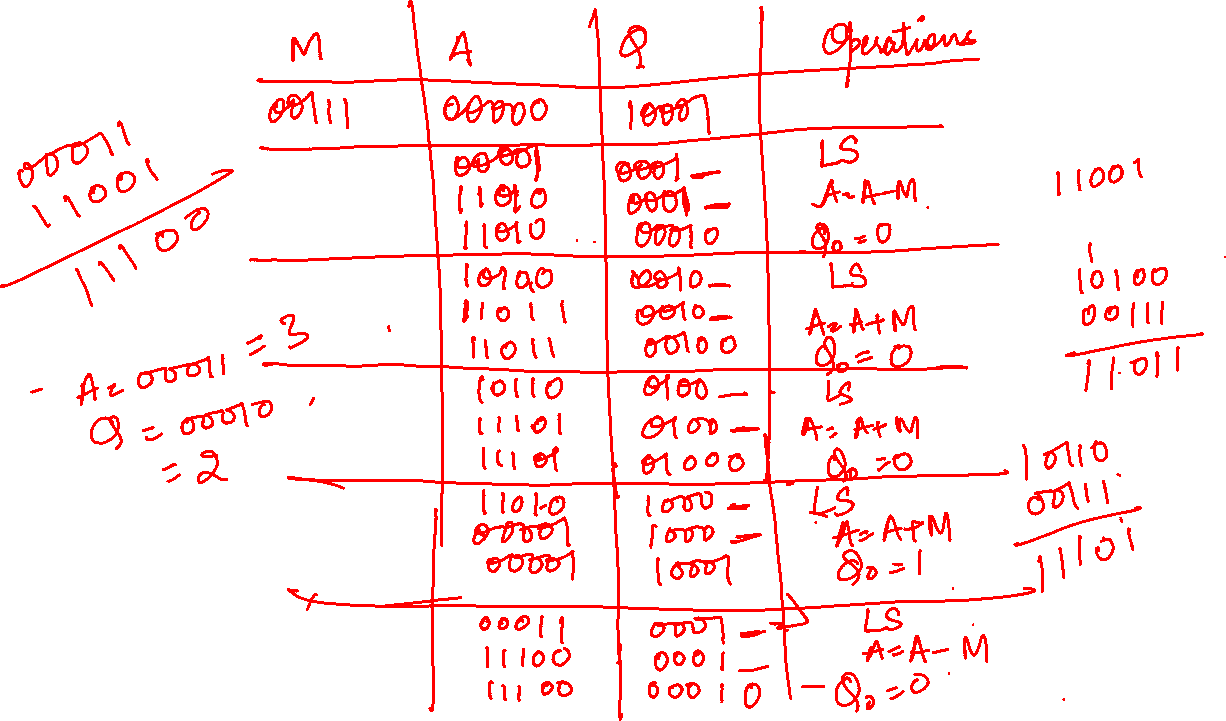 M A Q Operations
00111 00000 10001
00001 0001_ LS
11010 0001_ A=A-M.
11010 00010 Q₀=0
10100 0010_ LS
11011 0010_ A=A+M
11011 00100 Q₀=0
10110 0100_ LS
11101 0100_ A=A+M
11101 01000 Q₀=0
11010 1000_ LS
00001 1000_ A=A+M
00001 10001 Q₀=1
00011 0001_ LS
11100 0001_ A=A-M
11100 00010 -Q₀=0
00011
11001
11100
- A=00011=3
Q=00010
=2
11001
1
10100
00111
11011
10110
00111
11101